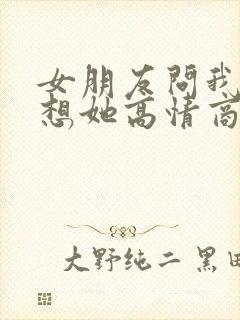 女朋友问我
想她高情商
大野纯二 黑田